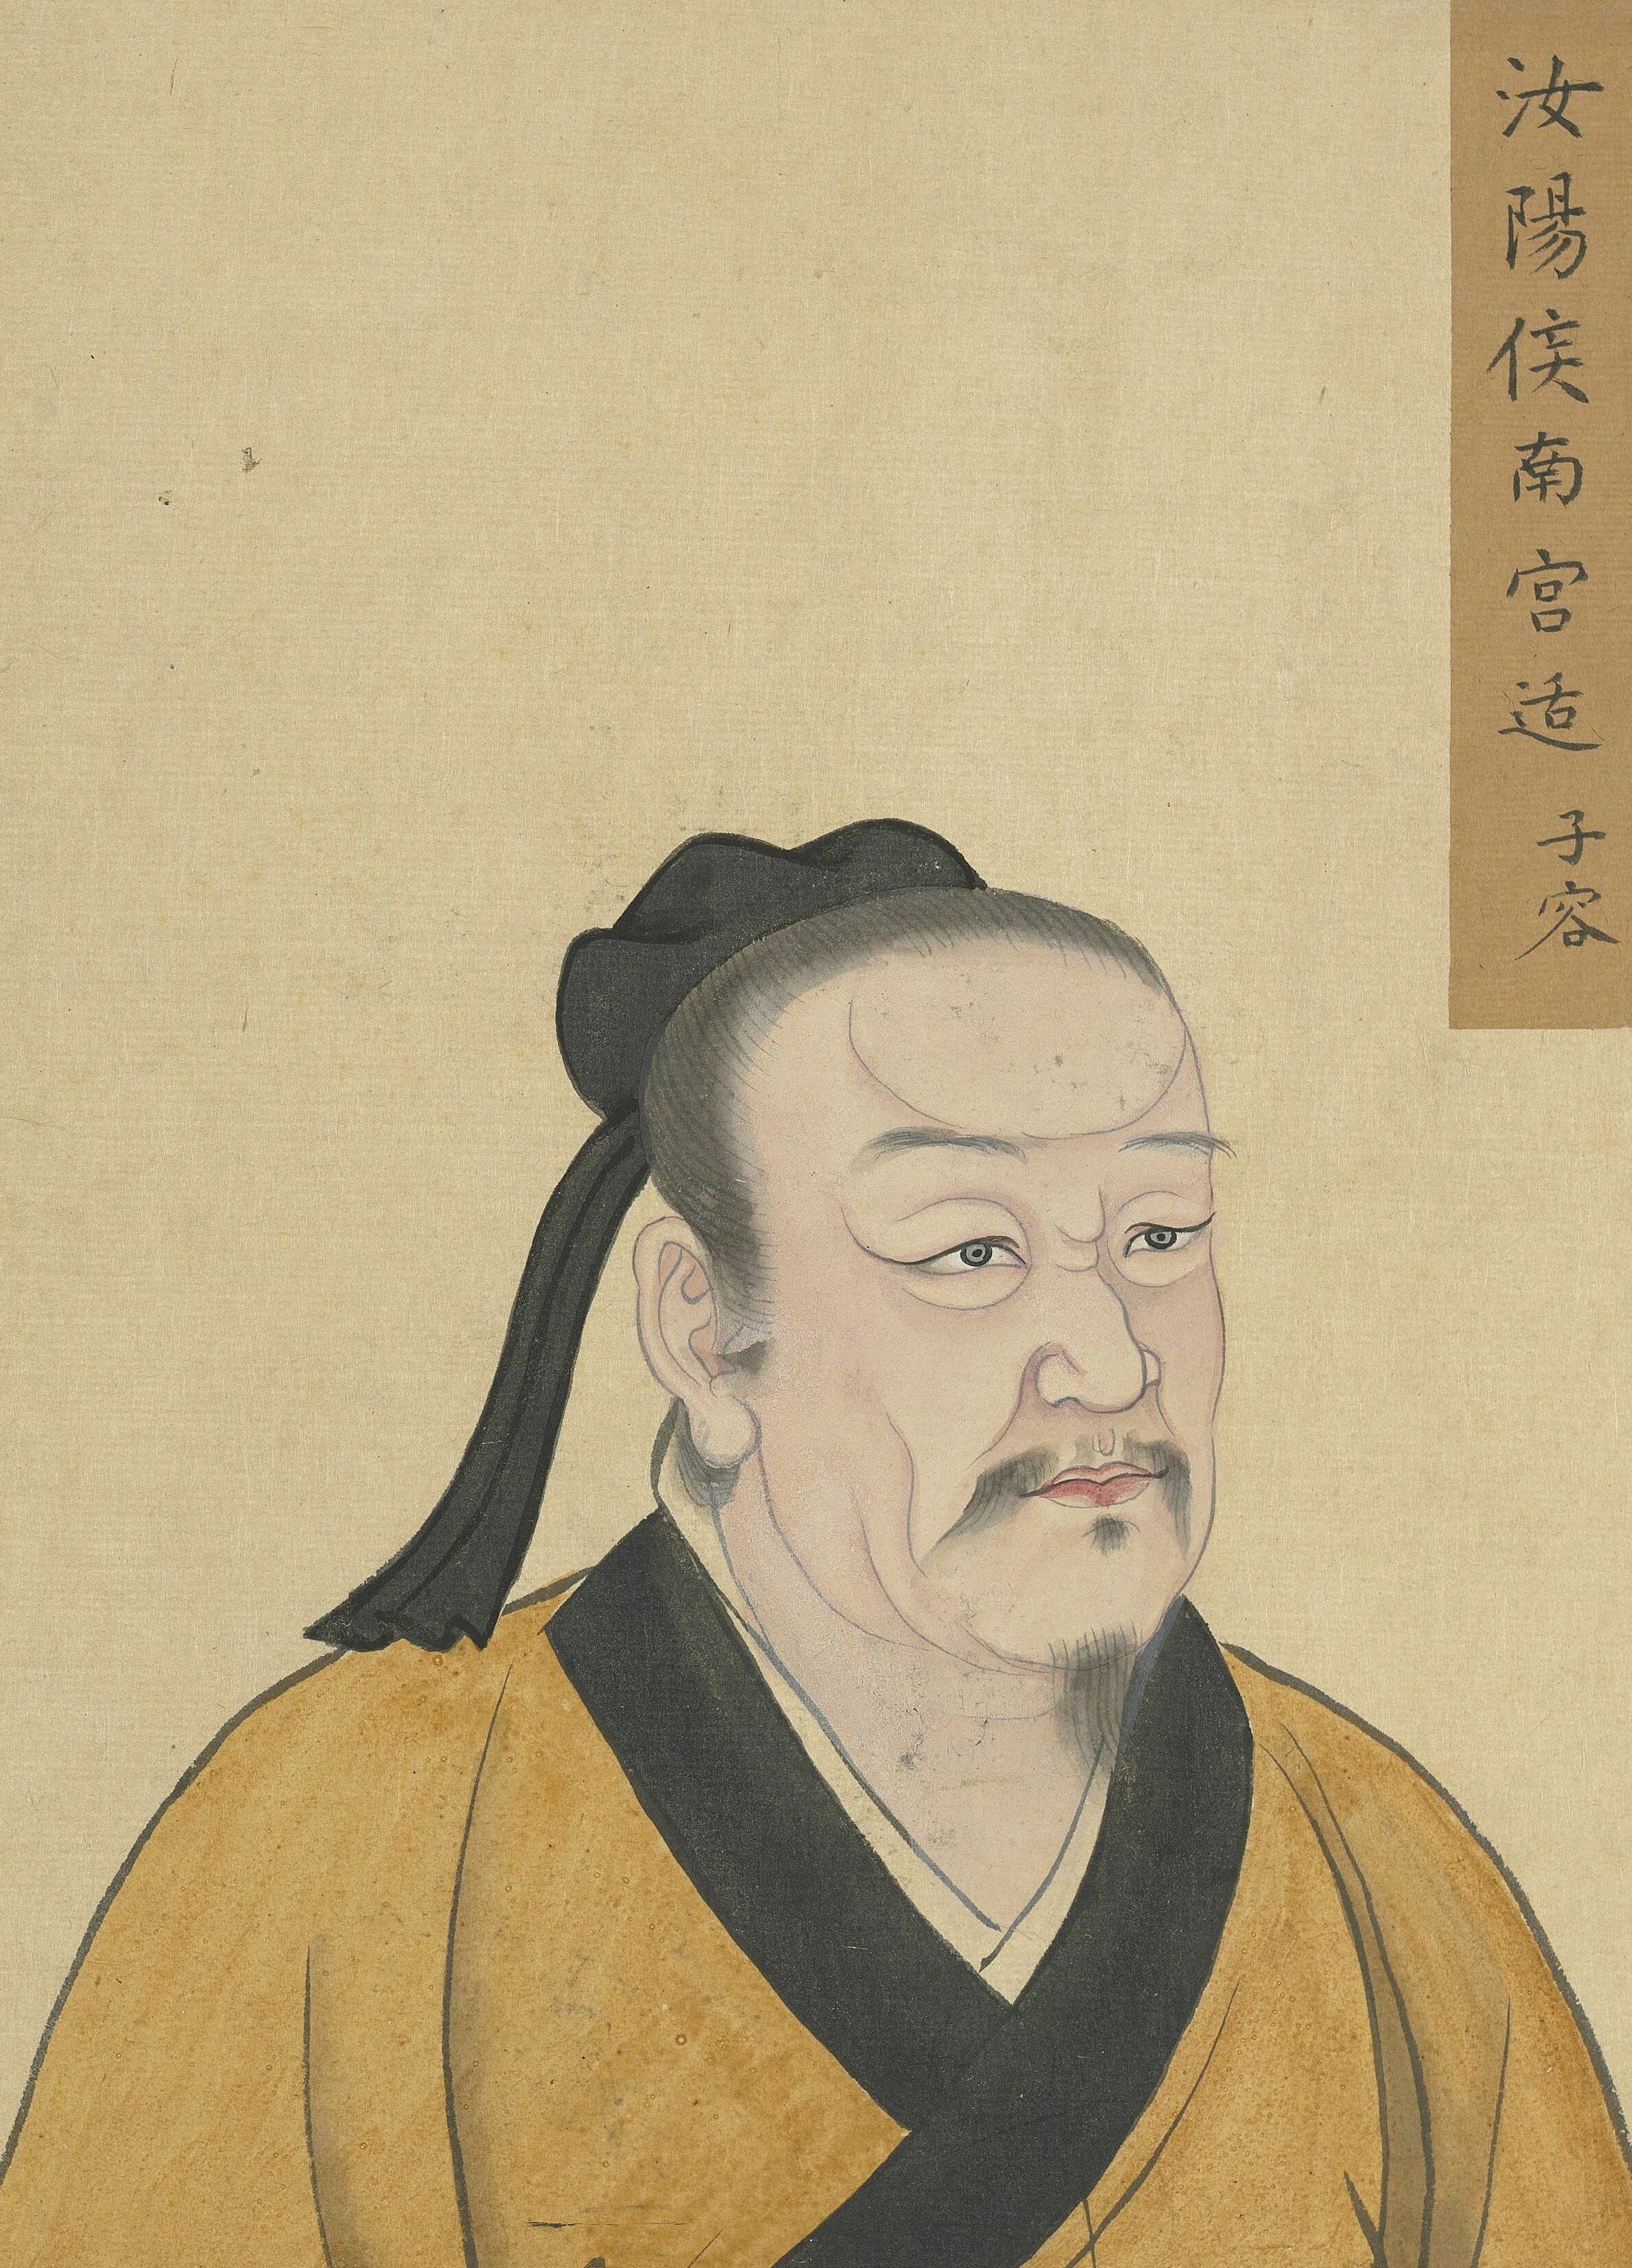 汝陽侯南宮适子容